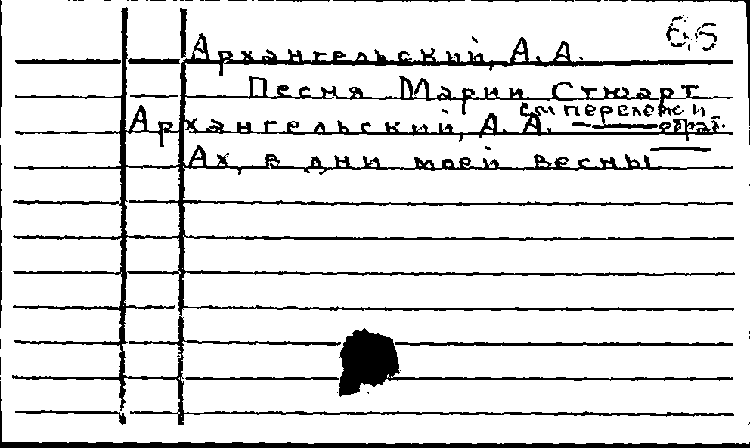 65
Архангельский, А. А.
Песня Марии Стюарт
см перелож и
Архангельский, А. А. обраб.
Ах, в дни моей весны